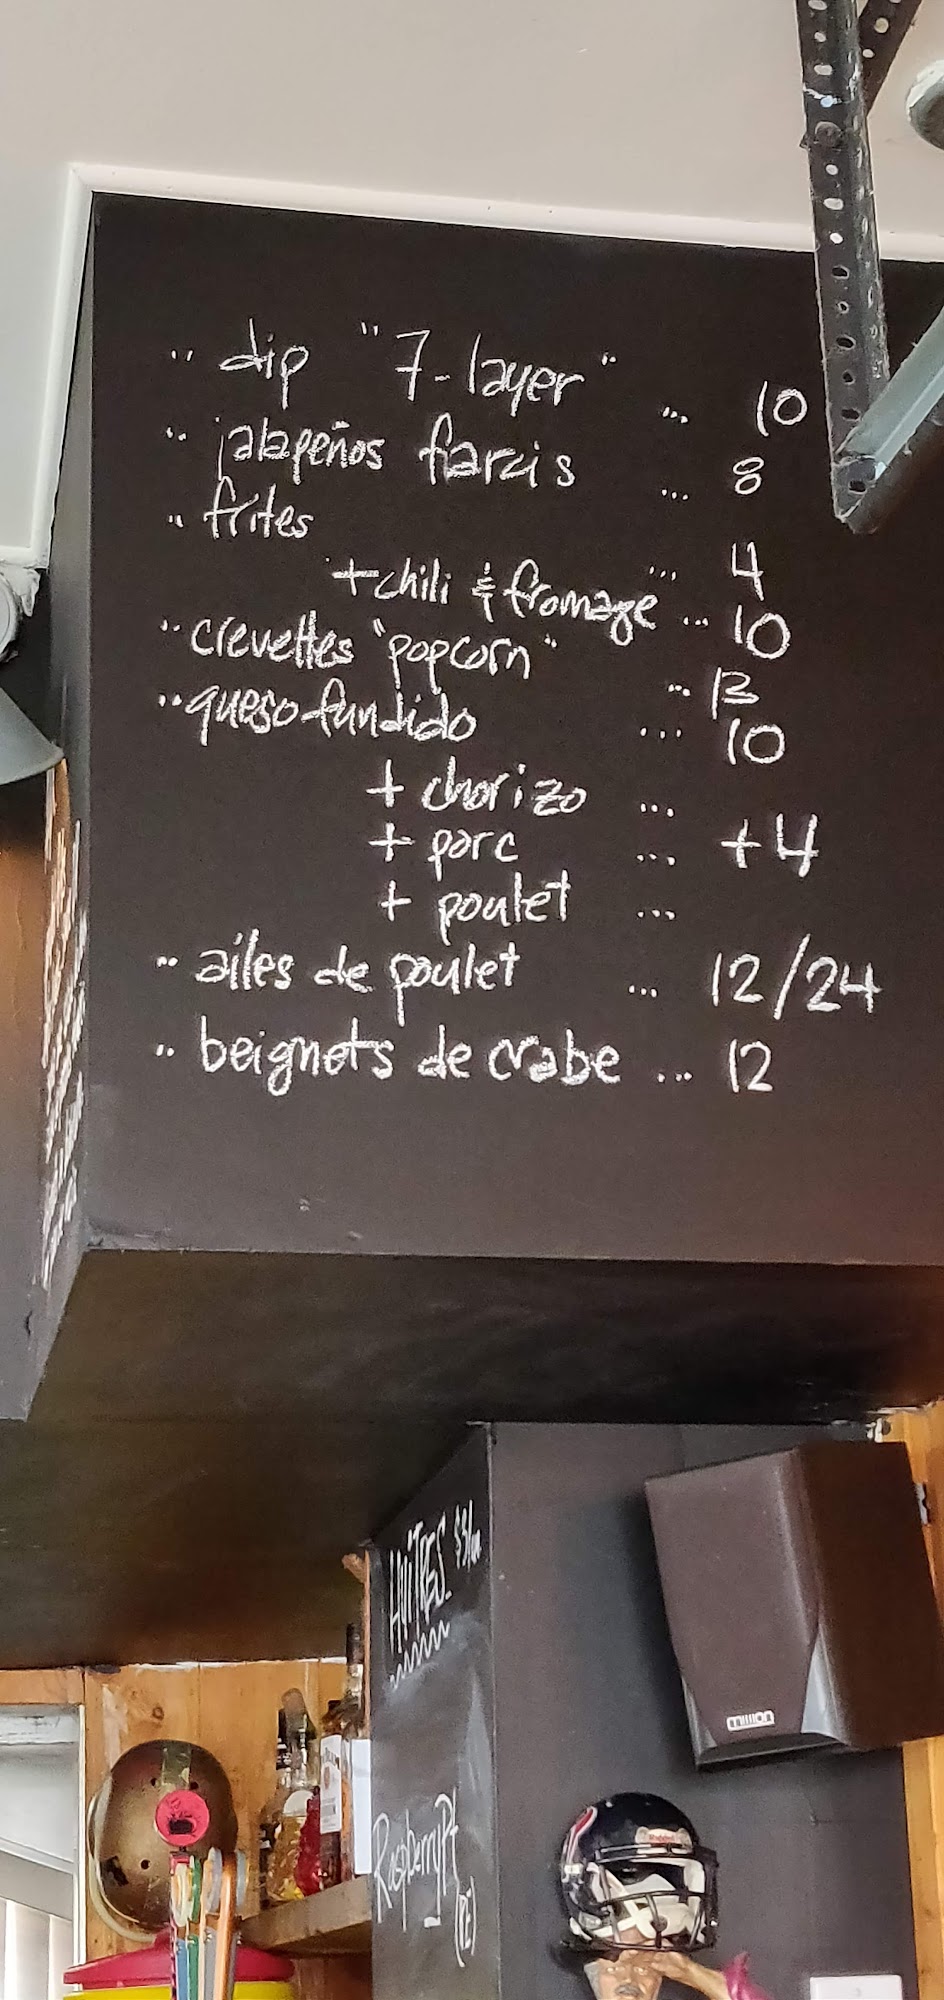 ·· dip "7-layer" ... 10
·· jalapeños farcis ... 8
·· frites ... 4
+chili & fromage ... 10
·· crevettes "popcorn" ... 13
·· queso fundido ... 10
+ chorizo ...
+ porc ... +4
+ poulet ...
·· ailes de poulet ... 12/24
·· beignets de crabe ... 12
HUÎTRES
RaspberryPt
(PEI)
million
Riddell